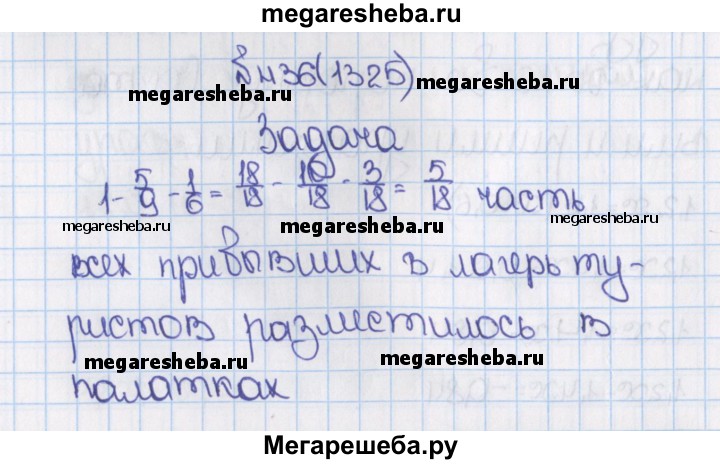 megaresheba.ru
№436(1325)
megaresheba.ru
megaresheba.ru
Задача
1 - 5/9 - 1/6 = 18/18 - 10/18 - 3/18 = 5/18 часть
megaresheba.ru
megaresheba.ru
megaresheba.ru
всех прибывших в лагерь ту-
ристов разместилось в
megaresheba.ru
megaresheba.ru
палатках
Мегарешеба.ру